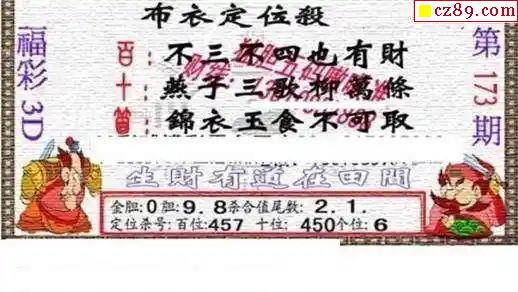 cz89.com
布衣定位殺
福彩3D
第173期
百：不三不四也有財
十：燕子三歌柳萬條
個：錦衣玉食不可取
生財有道在田間
金胆:0胆:9.8杀合值尾数:2.1.
定位杀号:百位:457 十位: 450个位:6